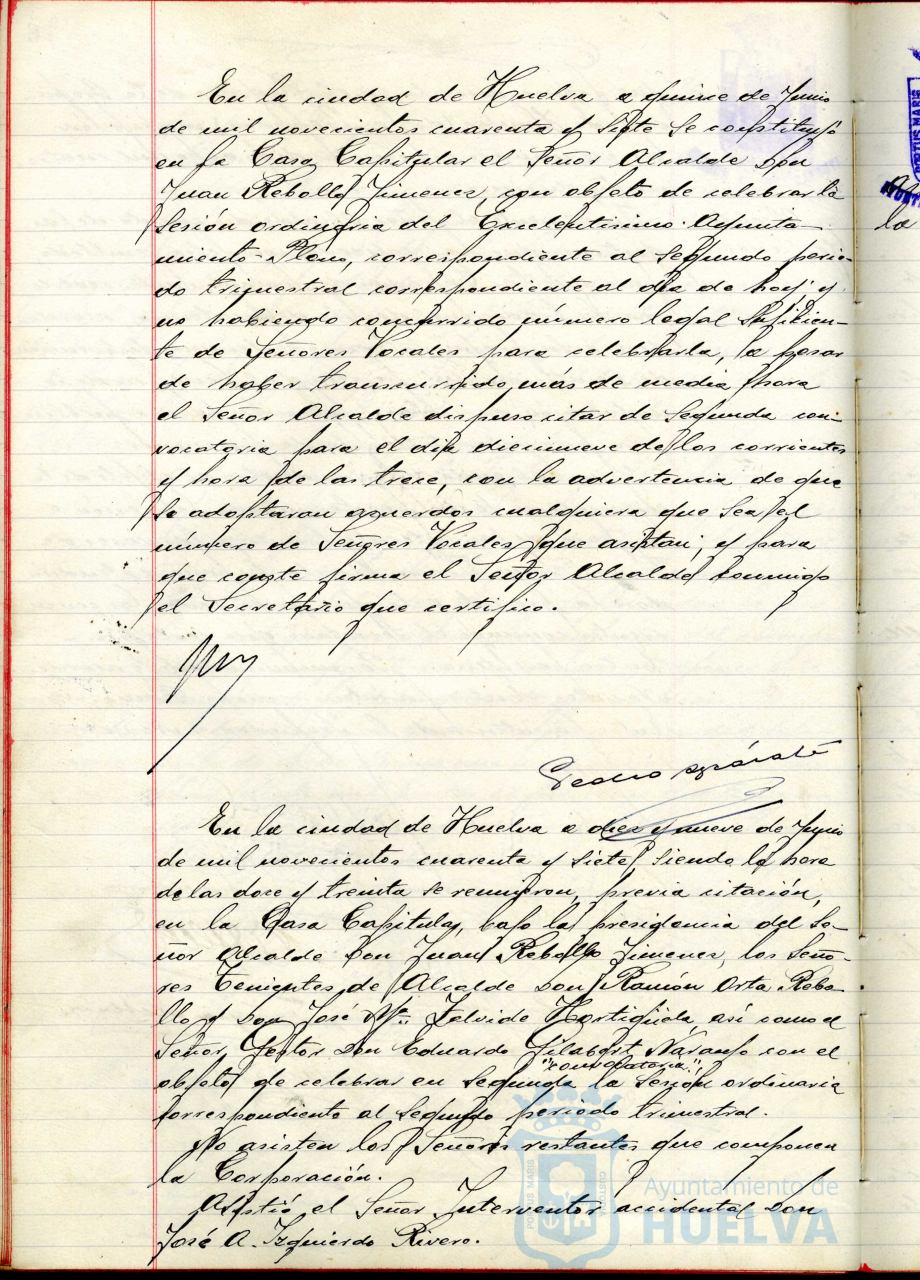 En la ciudad de Huelva a quince de Junio
de mil novecientos cuarenta y siete se constituyó
en la Casa Capitular el Señor Alcalde Don
Juan Rebollo Jimenez, con objeto de celebrar la
Sesión ordinaria del Excelentisimo Ayunta-
miento-Pleno, correspondiente al Segundo perio-
do trimestral correspondiente al día de hoy y
no habiendo concurrido número legal suficien-
te de Señores Vocales para celebrarla, a pesar
de haber transcurrido más de media hora
el Señor Alcalde dispuso citar de Segunda con-
vocatoria para el día diecinueve de los corrientes
y hora de las trece, con la advertencia de que
se adoptaran acuerdos cualquiera que sea el
número de Señores Vocales que asistan; y para
que conste firma el Señor Alcalde conmigo
el Secretario que certifico.
En la ciudad de Huelva a diez y nueve de Junio
de mil novecientos cuarenta y siete, siendo la hora
de las doce y treinta se reunieron, previa citación,
en la Casa Capitular, bajo la presidencia del Se-
ñor Alcalde Don Juan Rebollo Jimenez, los Seño-
res Tenientes de Alcalde Don Ramón Orta Rebo-
llo y Don José Mª Hortigüela, así como el
Señor Gestor Don Eduardo Gilabert Naranjo con el
"convocatoria"
objeto de celebrar en Segunda la Sesión ordinaria
correspondiente al Segundo periodo trimestral.
No asisten los Señores restantes que componen
la Corporación.
Asistió el Señor Interventor accidental Don
José A. Izquierdo Rivero.
Ayuntamiento de
HUELVA
PORTUS MARIS
la